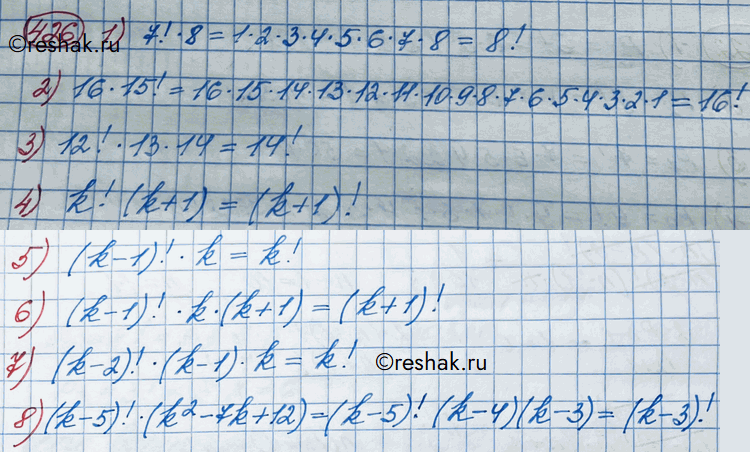 426 1) 7!·8 = 1·2·3·4·5·6·7·8 = 8!
©reshak.ru
2) 16·15! = 16·15·14·13·12·11·10·9·8·7·6·5·4·3·2·1 = 16!
3) 12!·13·14 = 14!
4) k! (k+1) = (k+1)!
5) (k-1)!·k = k!
6) (k-1)!·k·(k+1) = (k+1)!
7) (k-2)!·(k-1)·k = k!
©reshak.ru
8) (k-5)!·(k²-7k+12) = (k-5)! (k-4)(k-3) = (k-3)!